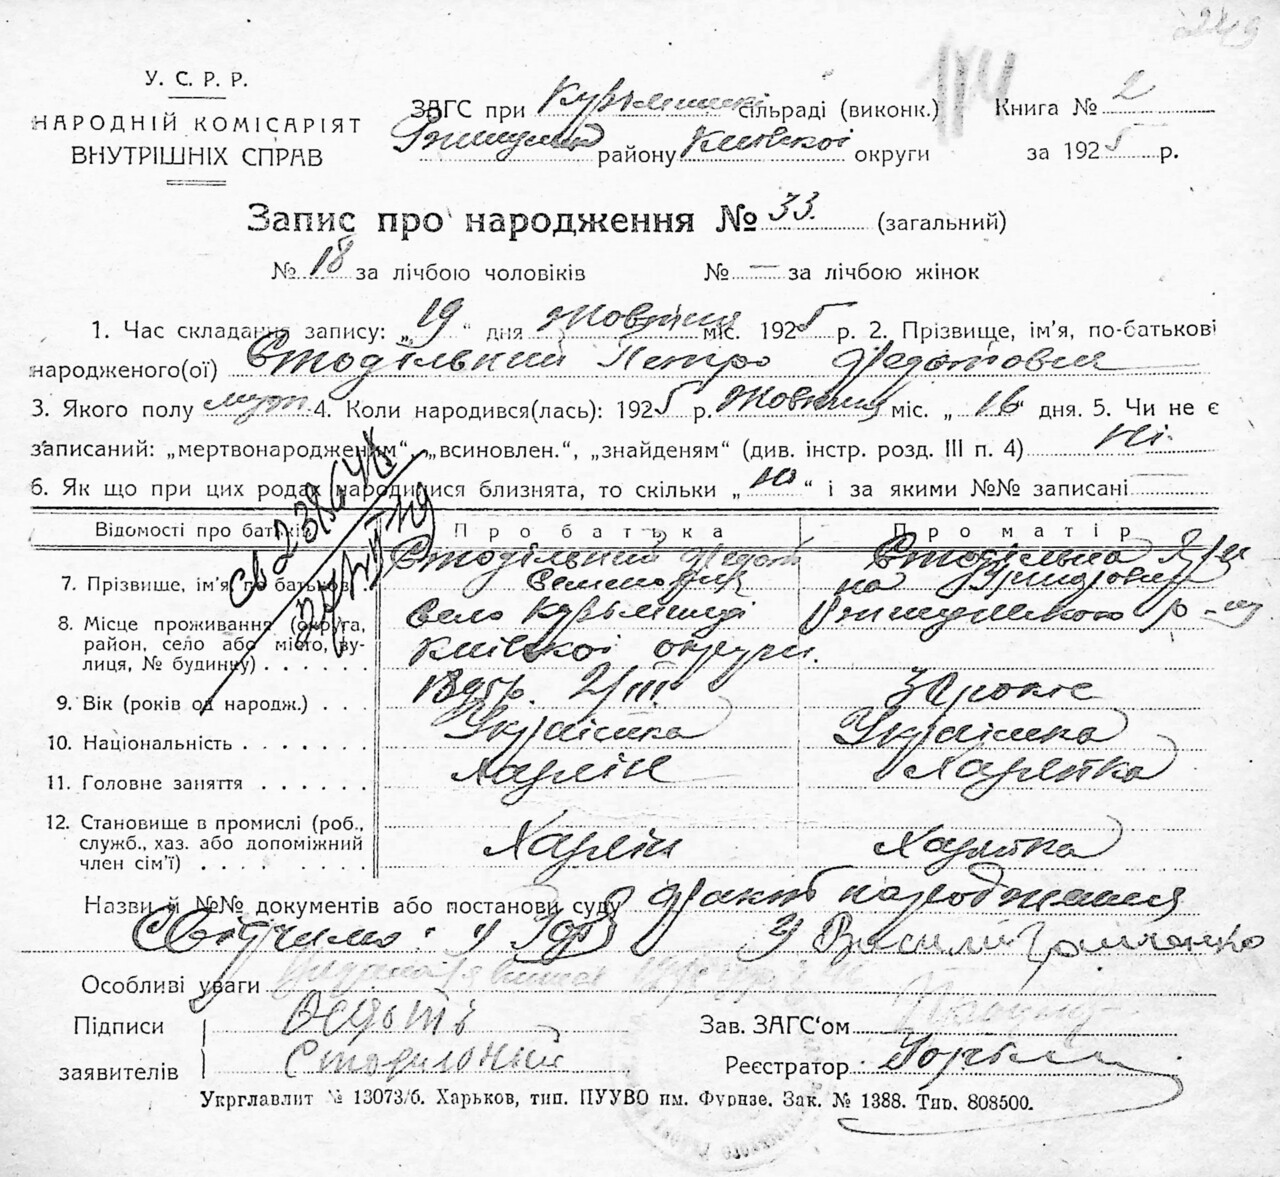 249
У. С. Р. Р.
НАРОДНІЙ КОМІСАРІЯТ
ВНУТРІШНІХ СПРАВ
174
ЗАГС при сільраді (виконк.) Книга № 2
району Київскої округи за 1925 р.
Запис про народження № 33. (загальний)
№ 18 за лічбою чоловіків № — за лічбою жінок
1. Час складання запису: „19“ дня Жовтня міс. 1925 р. 2. Прізвище, ім'я, по-батькові
народженого(ої) Стодільний Петро Федотович
3. Якого полу муж. 4. Коли народився(лась): 1925 р. Жовтня міс. „16“ дня. 5. Чи не є
записаний: „мертвонародженим“, „всиновлен.“, „знайденям“ (див. інстр. розд. III п. 4) Ні.
6. Як що при цих родах народилися близнята, то скільки „Ні“ і за якими №№ записані
Відомості про батьків Про батька Про матір
7. Прізвище, ім'я, по батькові . Стодільний Федот Семенович Стодільна
8. Місце проживання (округа, район, село або місто, вулиця, № будинку) . . . . . село Київскої округи.
9. Вік (років од народж.) . . . 2/III
10. Національність . . . . . . . Українка Українка
11. Головне заняття . . . . . . Хазяїн Хазяйка
12. Становище в промислі (роб., служб., хаз. або допоміжний член сім'ї) . . . . . Хазяїн Хазяйка
Назви й №№ документів або постанови суду факт народження
Свідчимо: 1) 2) Василь
Особливі уваги
Підписи Зав. ЗАГС'ом
заявителів Реєстратор
Укрглавлит № 13073/б. Харьков, тип. ПУУВО им. Фрунзе. Зак. № 1388. Тир. 808500.